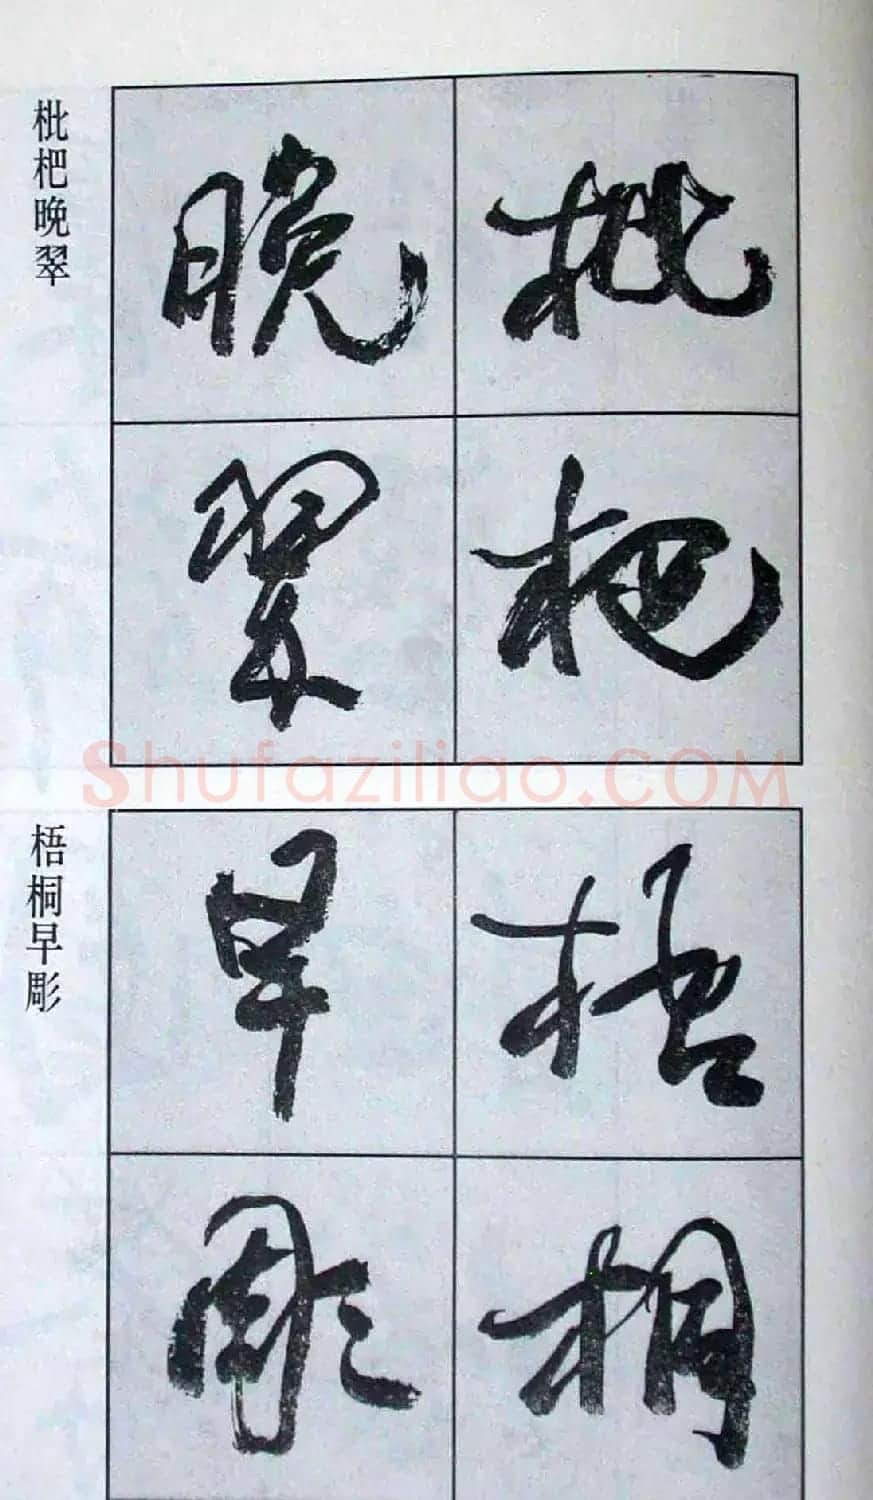 枇杷晚翠
枇杷
晚翠
Shufaziliao.COM
梧桐早彫
梧桐
早彫